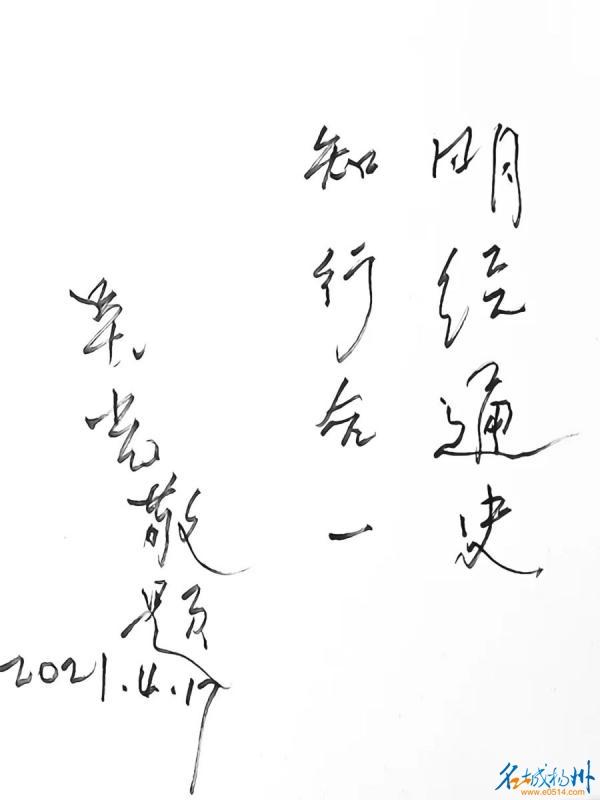 明经通史
知行合一
敬题
2021.4.17
名城扬州
www.e0514.com